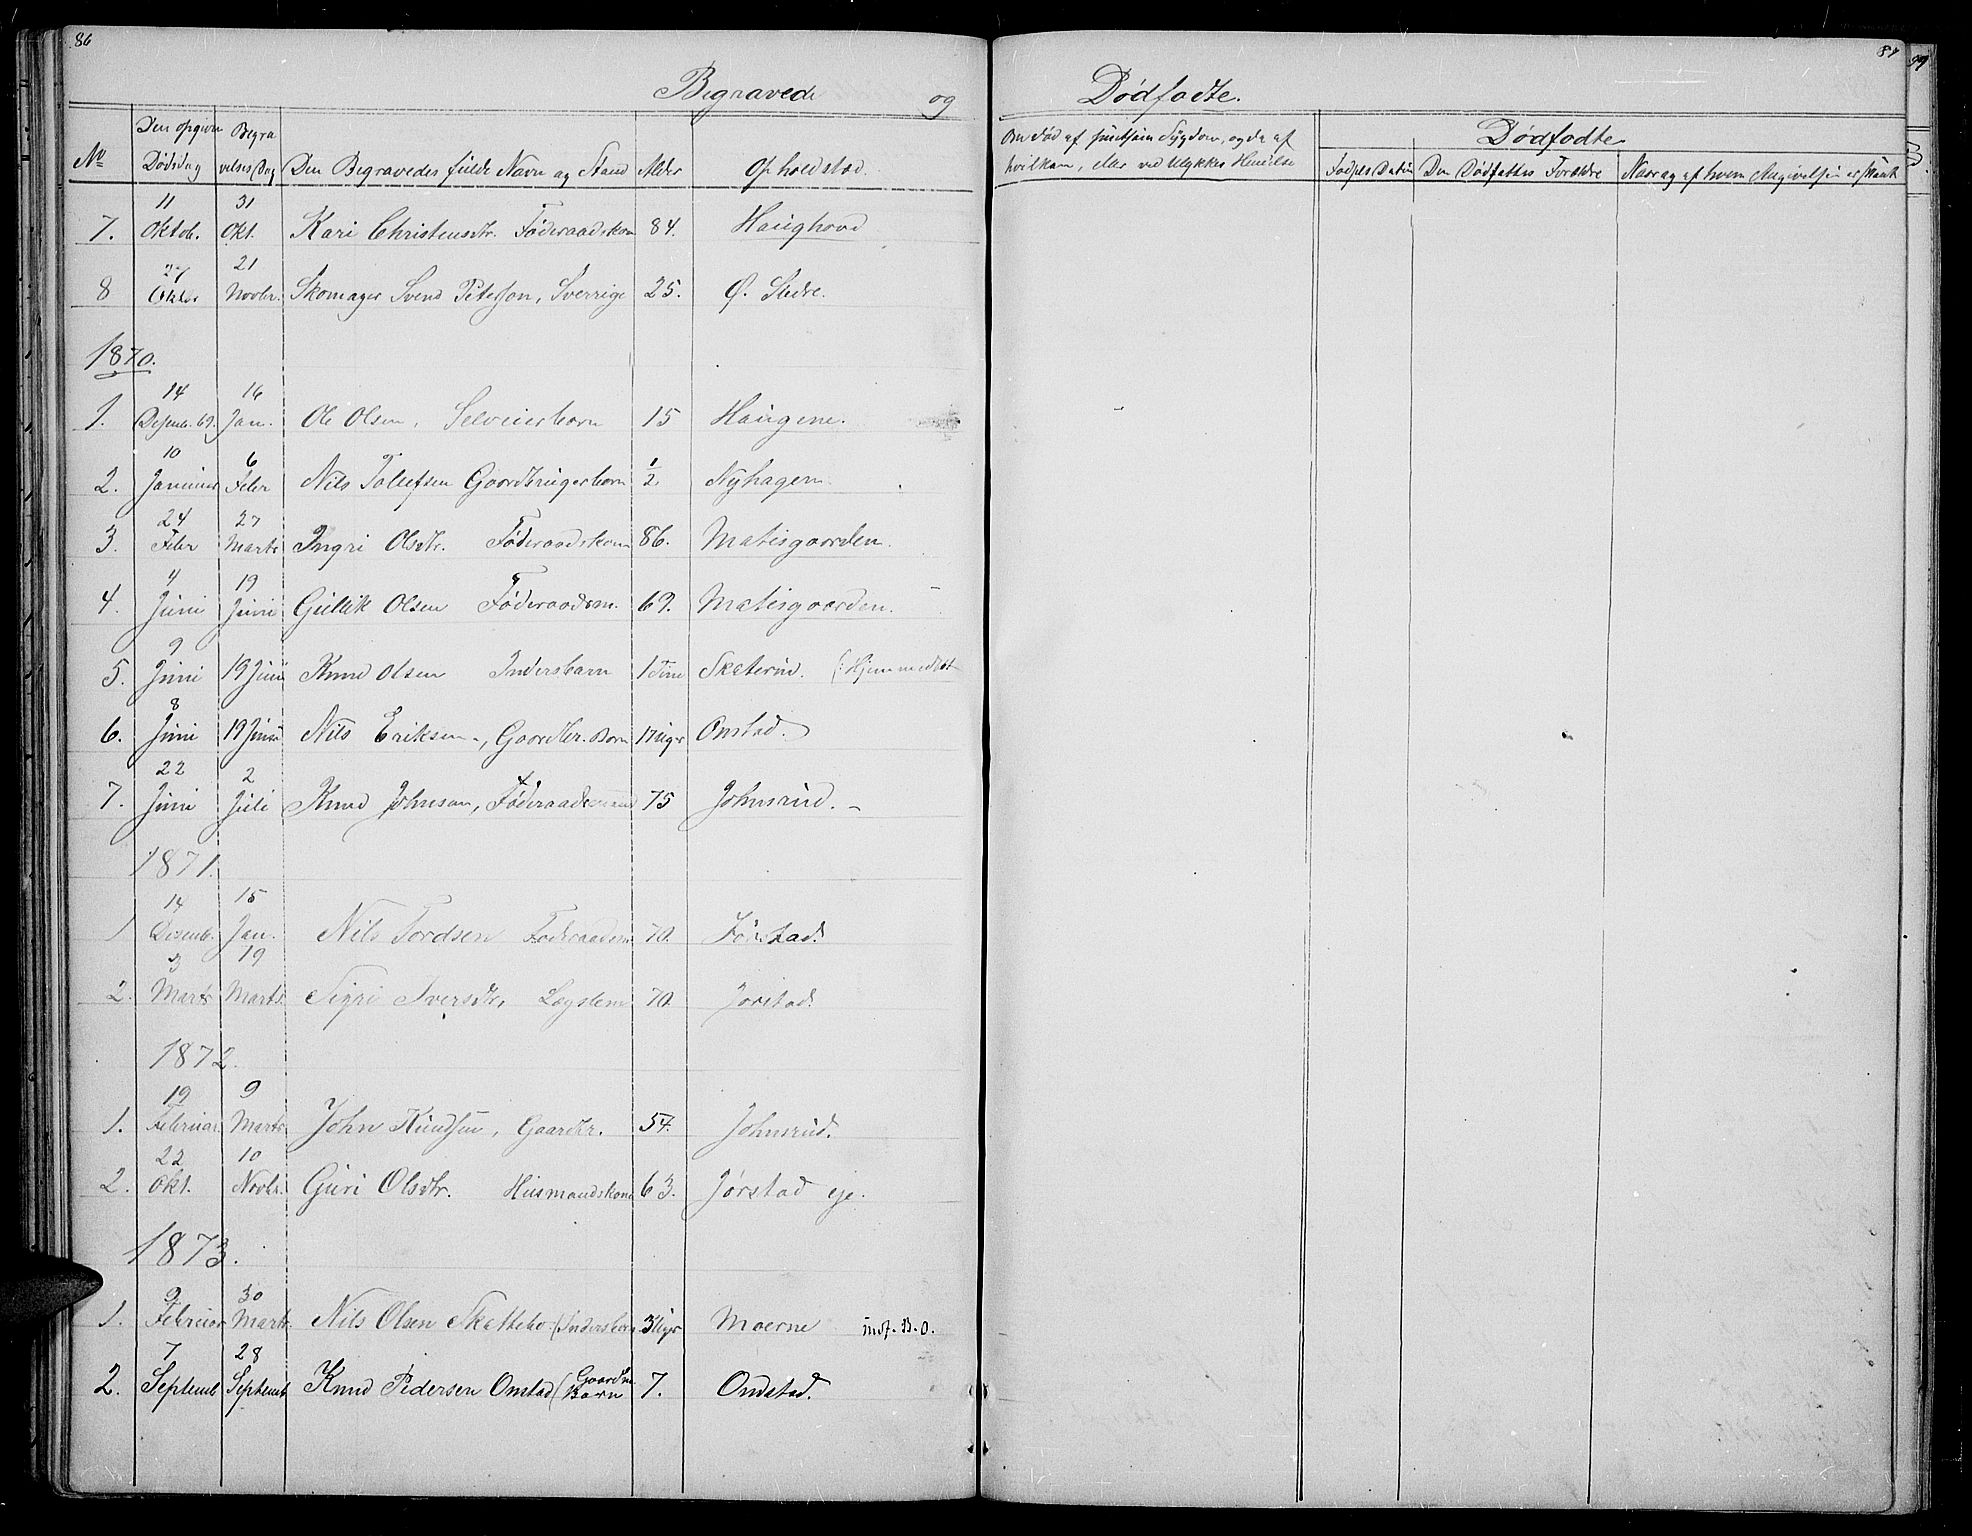 86
87
Begravede og Dødfødte.
No Den opgivne Dødsdag Begravelses Dag Den Begravedes fulde Navn og Stand Alder Opholdsted.
Om død af smitsom Sygdom, og da af hvilken, eller ved Ulykkes
Dødfødte
Fødsels Datum Den Dødfødtes Forældre Naar og af hvem Angivelsen er skeet
7. 11 Oktob. 31 Okt. Kari Christensdtr. Føderaadskone 84. Haughoved
8 27 Oktbr 21 Novbr. Skomager Svend Peterson, Sverrige 25. Ø. Slidre.
1870.
1. 14 Desemb. 69. 16 Jan. Ole Olsen, Selveierbarn 15 Haugene.
2. 10 Januar 6 Febr Nils Tollefsen Gaardbrugerbarn 1/2 Nyhagen
3. 24 Febr 27 Marts Ingri Olsdtr. Føderaadskone 86. Matisgaarden.
4. 4 Juni 19 Juni Gullik Olsen Føderaadsm. 69. Matisgaarden.
5. 9 Juni 19 Juni Knud Olsen Inderstbarn 1 Time Skaterud. (: Hjemmedøbt
6. 8 Juni 19 Juni Nils Eriksen, Gaardbr. Barn 17 Uger Onstad.
7. 22 Juni 2 Juli Knud Johnsen, Føderaadsmand 75 Johnsrud.
1871.
1 14 Desemb. 15 Jan. Nils Tordsen Føderaadsm 70. Jørstad.
2. 3 Marts 19 Marts. Sigri Iversdtr, Lægslem 70. Jørstad.
1872.
1. 19 Februar 9 Marts John Knudsen, Gaardbr. 54. Johnsrud.
2. 22 Okt. 10 Novbr. Guri Olsdtr. Husmandskone 63. Jørstad eje.
1873.
1. 9 Februar 30 Marts. Nils Olsen Skattebo (Inderstbarn 3 Uger Moerne inds. B. O.
2. 7 Septemb 28 Septemb. Knud Pedersen Onstad (Gaardm. Barn 7. Ondstad.